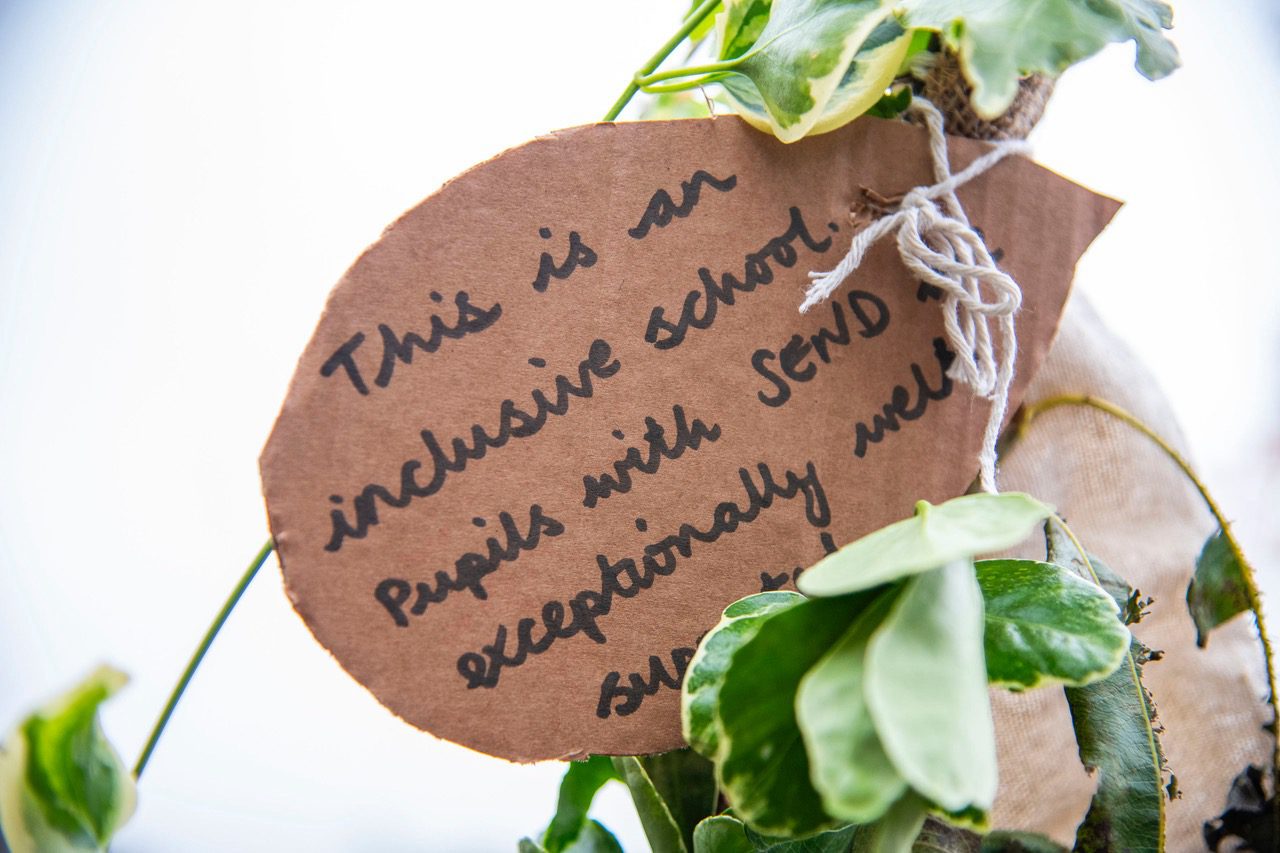 This is an
inclusive school.
Pupils with SEND
exceptionally well